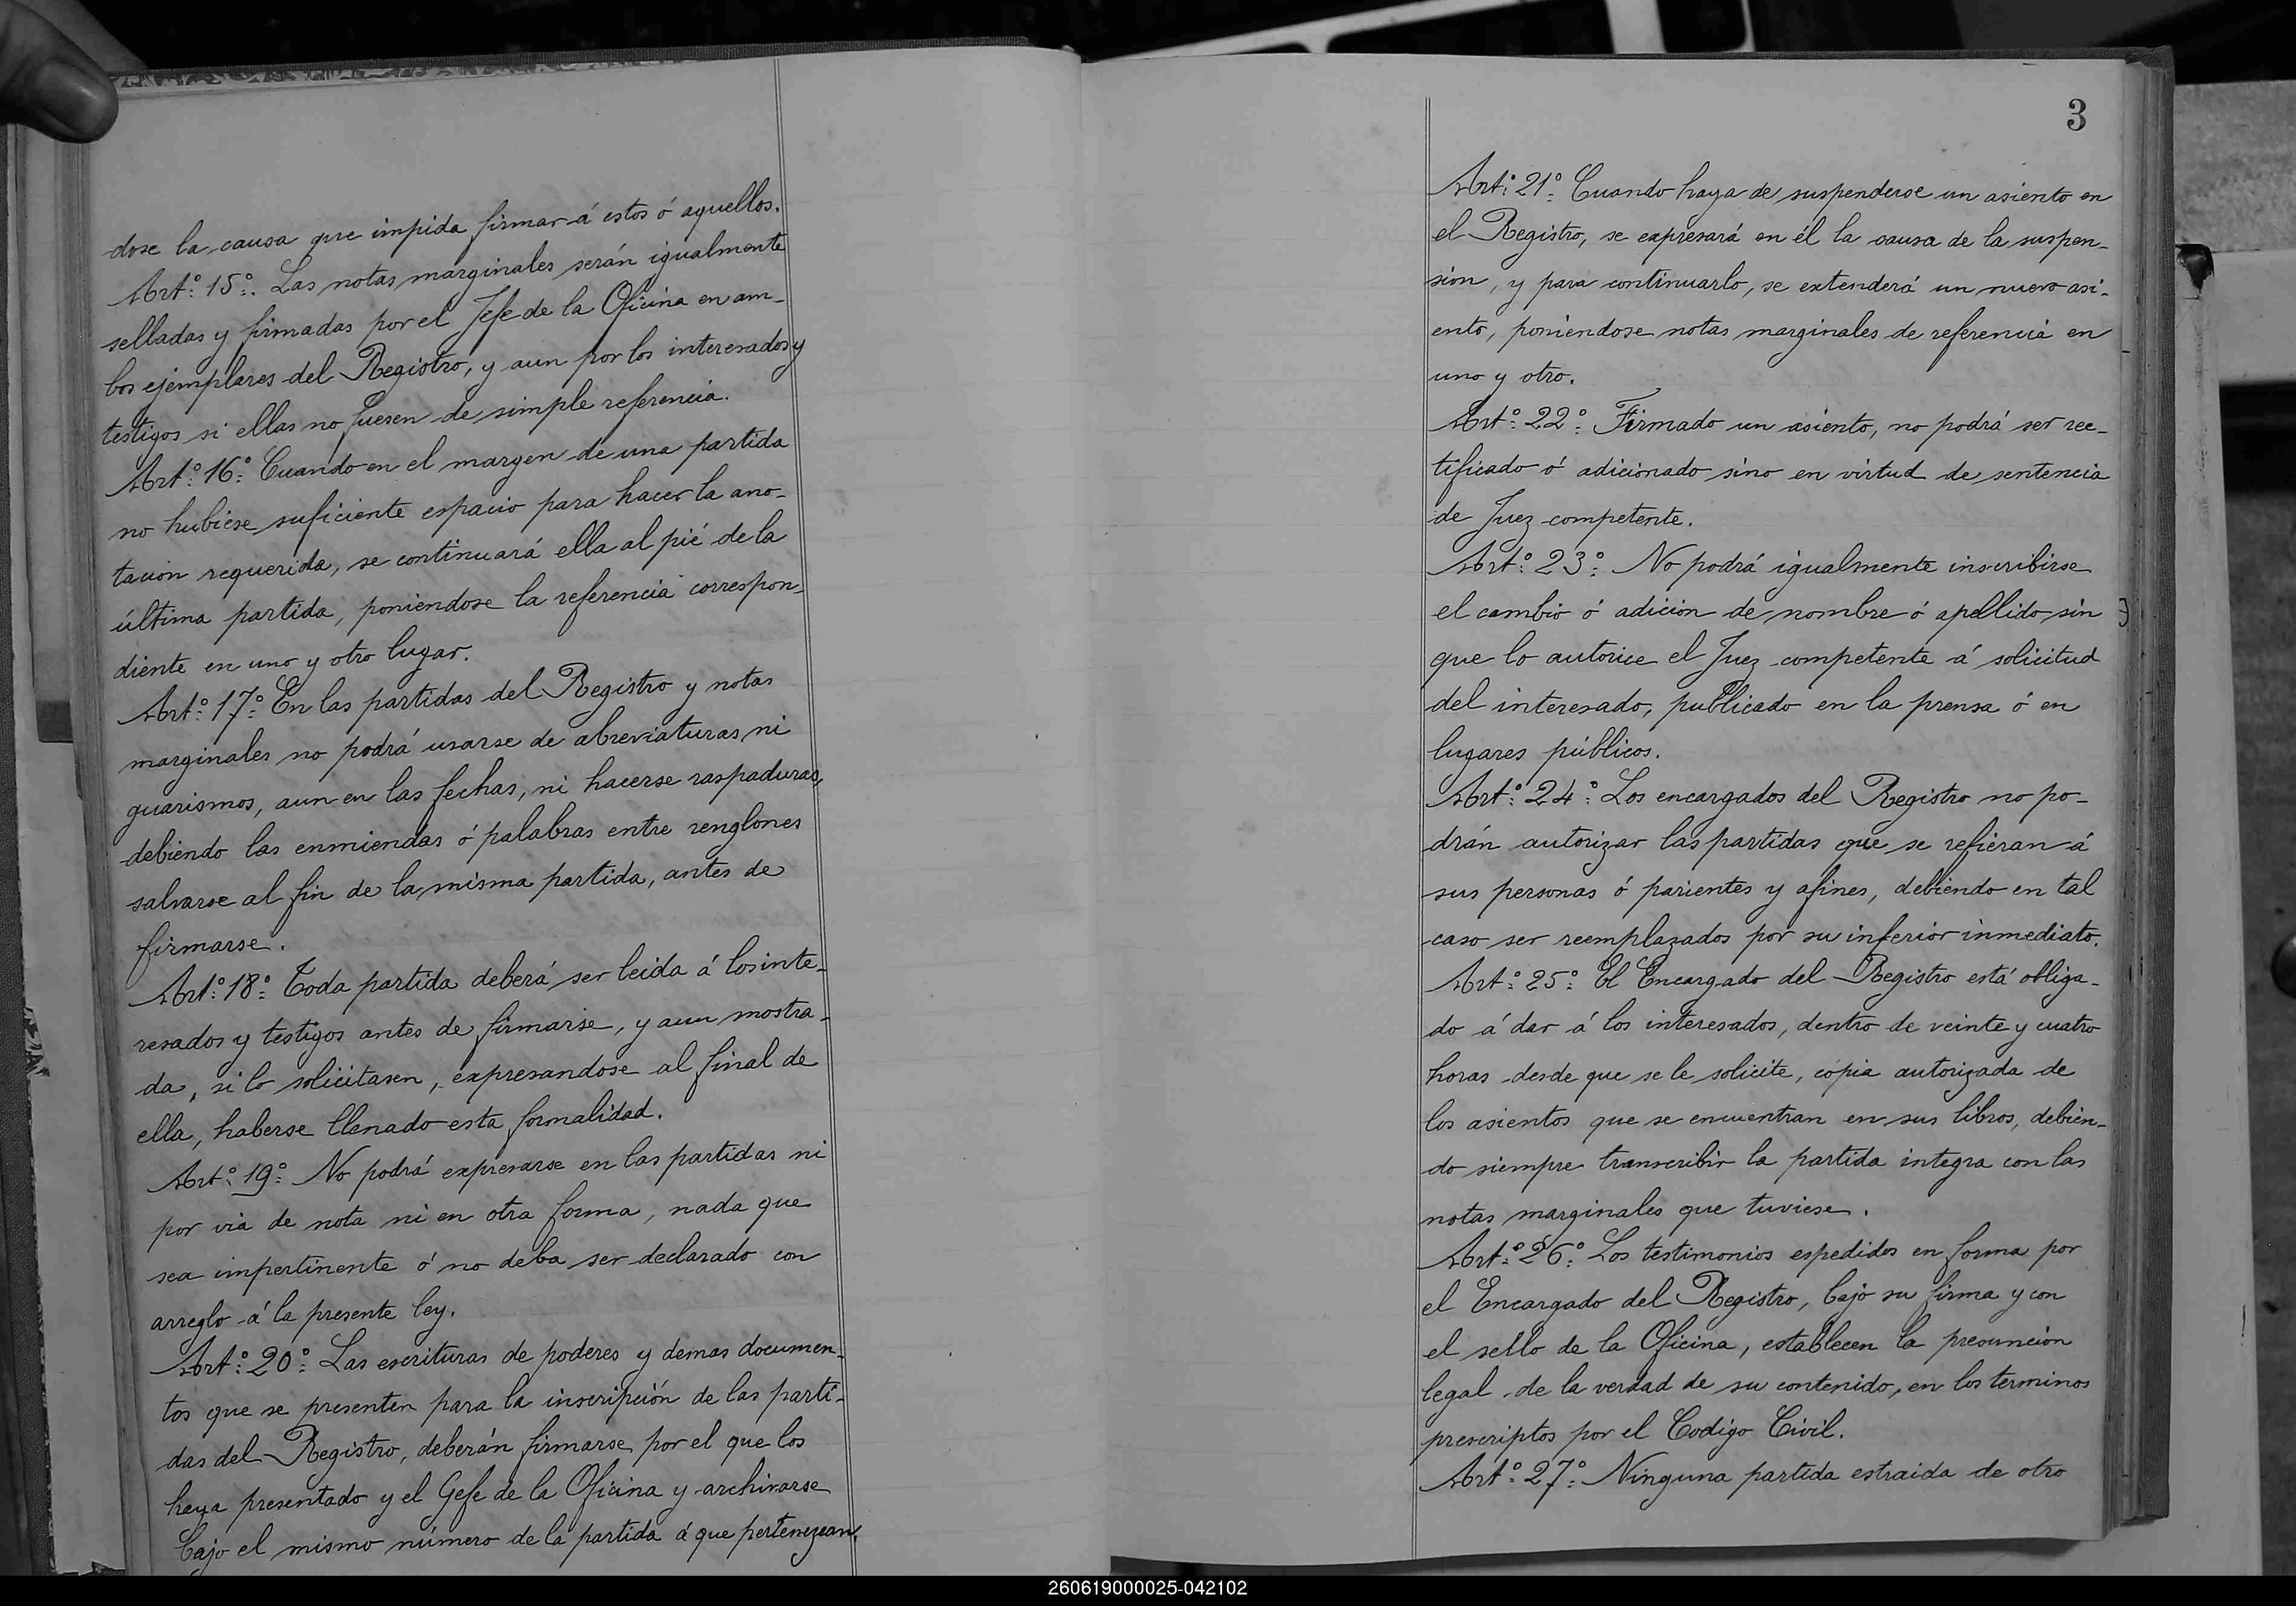 dose la causa que impida firmar á estos ó aquellos.
Art.º 15º. Las notas marginales serán igualmente
selladas y firmadas por el Jefe de la Oficina en am-
bos ejemplares del Registro, y aun por los interesados y
testigos si ellas no fuesen de simple referencia.
Art.º 16º Cuando en el margen de una partida
no hubiese suficiente espacio para hacer la ano-
tación requerida, se continuará ella al pié de la
última partida, poniendose la referencia correspon-
diente en uno y otro lugar.
Art.º 17º En las partidas del Registro y notas
marginales no podrá usarse de abreviaturas ni
guarismos, aun en las fechas, ni hacerse raspaduras,
debiendo las enmiendas ó palabras entre renglones
salvarse al fin de la misma partida, antes de
firmarse.
Art.º 18º Toda partida deberá ser leida á los inte-
resados y testigos antes de firmarse, y aun mostra-
da, si lo solicitasen, expresandose al final de
ella, haberse llenado esta formalidad.
Art.º 19º No podrá expresarse en las partidas ni
por via de nota ni en otra forma, nada que
sea impertinente ó no deba ser declarado con
arreglo á la presente ley.
Art.º 20º Las escrituras de poderes y demas documen-
tos que se presenten para la inscripción de las parti-
das del Registro, deberán firmarse por el que los
haya presentado y el Gefe de la Oficina y archivarse
bajo el mismo número de la partida á que pertenezcan.
3
Art.º 21º Cuando haya de suspenderse un asiento en
el Registro, se expresará en él la causa de la suspen-
sión, y para continuarlo, se extenderá un nuevo asi-
ento, poniendose notas marginales de referencia en
uno y otro.
Art.º 22º Firmado un asiento, no podrá ser rec-
tificado ó adicionado sino en virtud de sentencia
de Juez competente.
Art.º 23º No podrá igualmente inscribirse
el cambio ó adición de nombre ó apellido sin
que lo autorice el Juez competente á solicitud
del interesado, publicado en la prensa ó en
lugares públicos.
Art.º 24º Los encargados del Registro no po-
drán autorizar las partidas que se refieran á
sus personas ó parientes y afines, debiendo en tal
caso ser reemplazados por su inferior inmediato.
Art.º 25º El Encargado del Registro está obliga-
do á dar á los interesados, dentro de veinte y cuatro
horas desde que se le solicite, copia autorizada de
los asientos que se encuentran en sus libros, debien-
do siempre transcribir la partida integra con las
notas marginales que tuviese.
Art.º 26º Los testimonios espedidos en forma por
el Encargado del Registro, bajo su firma y con
el sello de la Oficina, establecen la presunción
legal de la verdad de su contenido, en los terminos
prescriptos por el Codigo Civil.
Art.º 27º Ninguna partida estraida de otro
260619000025-042102